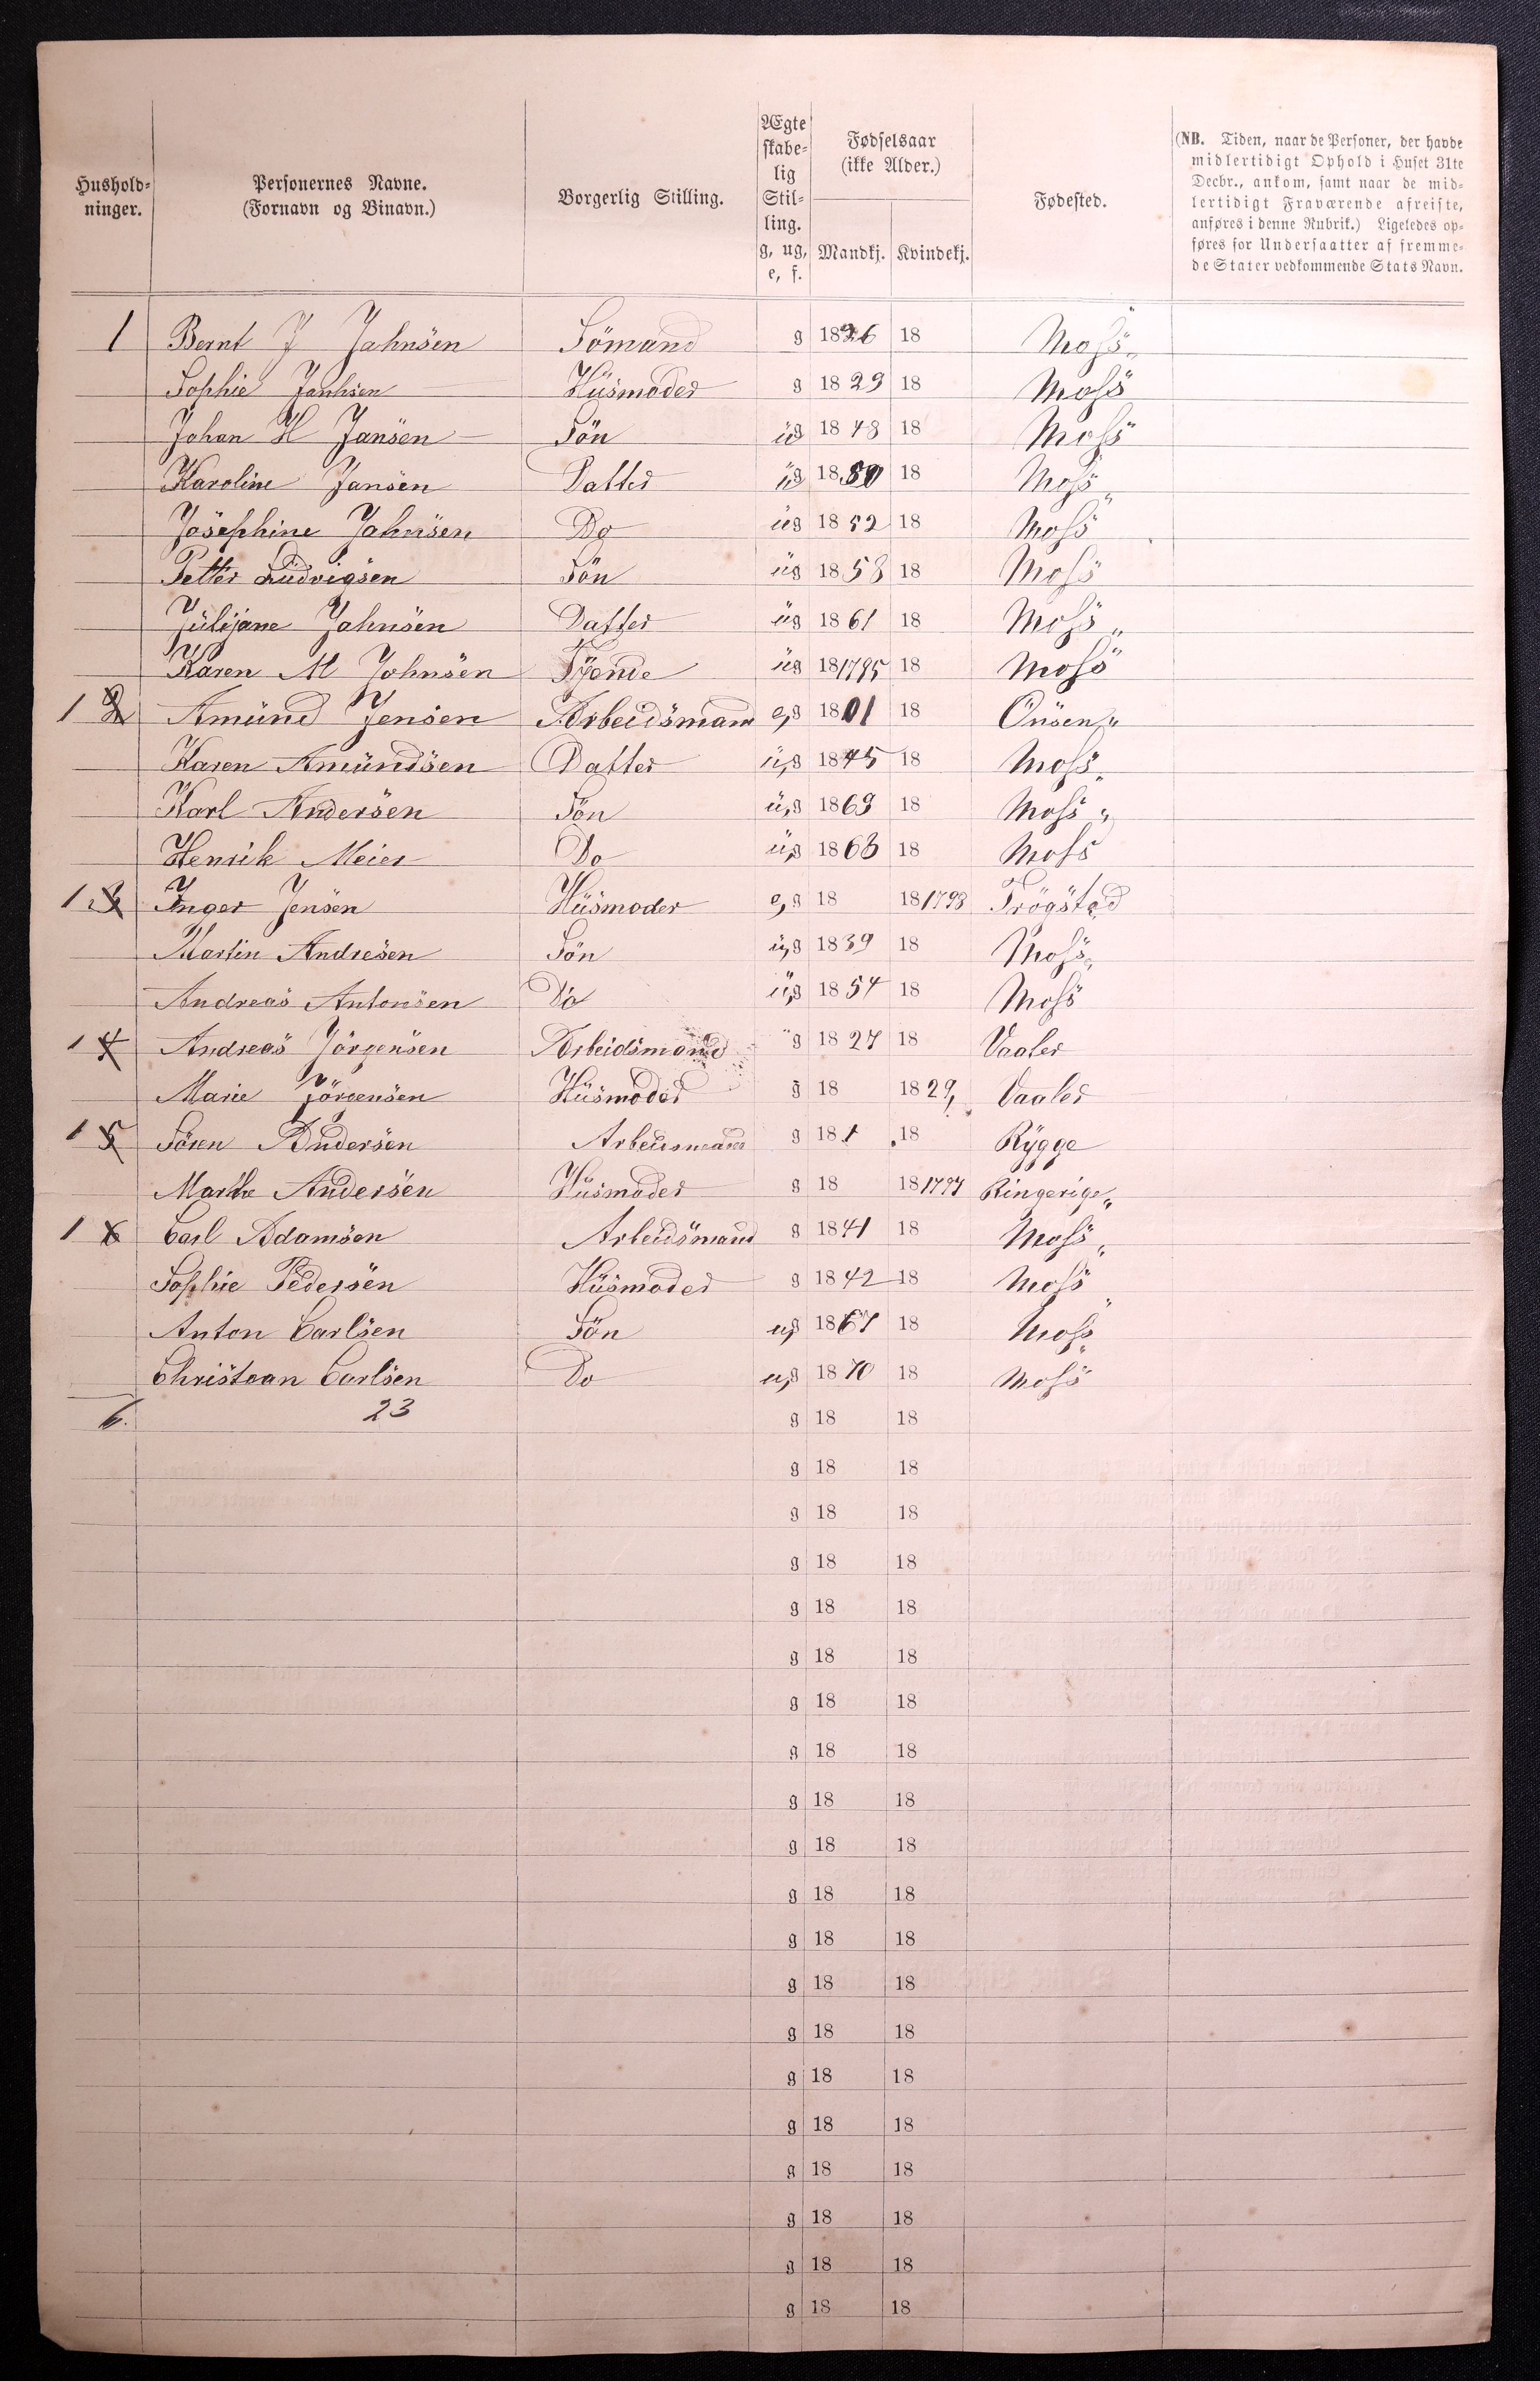 Hushold-
ninger.
Personernes Navne.
(Fornavn og Binavn.)
Borgerlig Stilling.
Ægte
skabe-
lig
Stil-
ling.
g, ug,
e, f.
Fødselsaar
(ikke Alder.)
Mandkj. Kvindekj.
Fødested.
(NB. Tiden, naar de Personer, der havde
midlertidigt Ophold i Huset 31te
Decbr., ankom, samt naar de mid-
lertidigt Fraværende afreiste,
anføres i denne Rubrik.) Ligeledes op-
føres for Undersaatter af fremme-
de Stater vedkommende Stats Navn.
1 Bernt J Jahnsen Sömand g 1826 18 Moss
Sophie Janhsen Husmoder g 1829 18 Moss
Johan H Jansen Sön ug 1848 18 Moss
Karoline Jansen Datter ug 1850 18 Moss
Josephine Jahnsen Do ug 1852 18 Moss
Petter Ludvigsen Sön ug 1858 18 Moss
Julijane Jahnsen Datter ug 1861 18 Moss
Karen M Johnsen Tyende ug 181795 18 Moss
1 2 Amund Jensen Arbeidsmam e,g 1801 18 Onsen
Karen Amundsen Datter u,g 1845 18 Moss
Karl Andersen Sön u,g 1869 18 Moss
Henrik Meier Do u,g 1868 18 Moss
1 3 Inger Jensen Husmoder e,g 18 181798 Trögstad
Martin Andresen Sön u,g 1839 18 Moss
Andreas Antonsen Do u,g 1854 18 Moss
1 4 Andreas Jörgensen Arbeidsmand g 1827 18 Vaaler
Marie Jörgensen Husmoder g 18 1829, Vaaler
1 5 Sören Andersen Arbeidsmand g 181 18 Rygge
Marthe Andersen Husmoder g 18 181797 Ringerige
1 6 Carl Adamsen Arbeidsmand g 1841 18 Moss
Sophie Pedersen Husmoder g 1842 18 Moss
Anton Carlsen Sön ug 1867 18 Moss
Christean Carlsen Do u,g 1870 18 Moss
6. 23 g 18 18
g 18 18
g 18 18
g 18 18
g 18 18
g 18 18
g 18 18
g 18 18
g 18 18
g 18 18
g 18 18
g 18 18
g 18 18
g 18 18
g 18 18
g 18 18
g 18 18
g 18 18
g 18 18
g 18 18